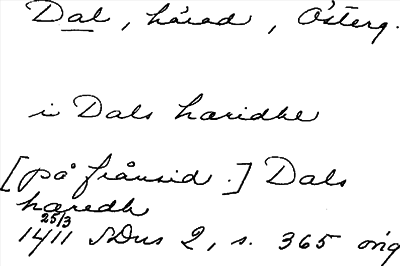 Dal, härad, Österg.
i Dals hæridhe
[på frånsid.] Dals
hæredh
25/3
1411 SDns 2, s. 365 orig